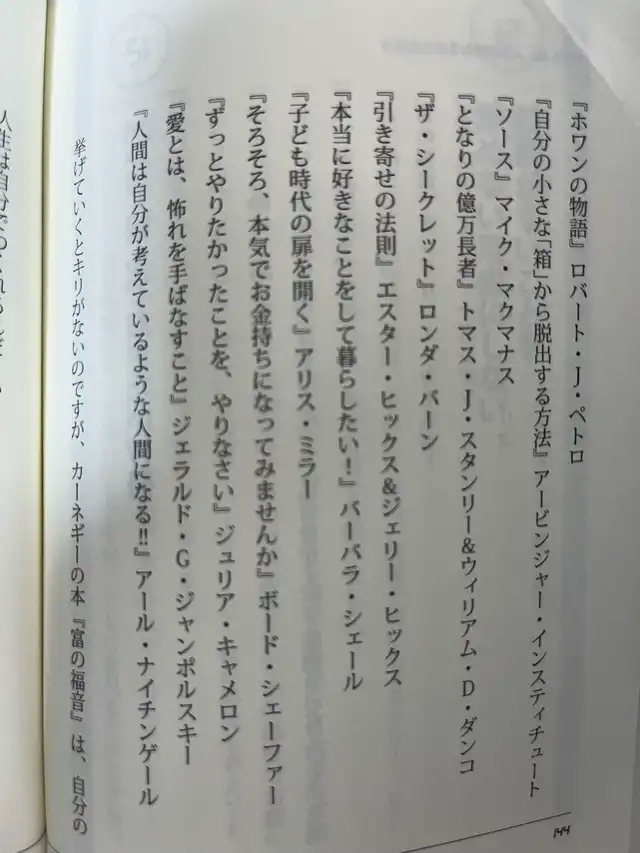 『ホワンの物語』ロバート・J・ペトロ
『自分の小さな「箱」から脱出する方法』アービンジャー・インスティチュート
『ソース』マイク・マクマナス
『となりの億万長者』トマス・J・スタンリー&ウィリアム・D・ダンコ
『ザ・シークレット』ロンダ・バーン
『引き寄せの法則』エスター・ヒックス&ジェリー・ヒックス
『本当に好きなことをして暮らしたい！』バーバラ・シェール
『子ども時代の扉を開く』アリス・ミラー
『そろそろ、本気でお金持ちになってみませんか』ボード・シェーファー
『ずっとやりたかったことを、やりなさい』ジュリア・キャメロン
『愛とは、怖れを手ばなすこと』ジェラルド・G・ジャンポルスキー
『人間は自分が考えているような人間になる!!』アール・ナイチンゲール
挙げていくとキリがないのですが、カーネギーの本『富の福音』は、自分の
144
人生は自分で